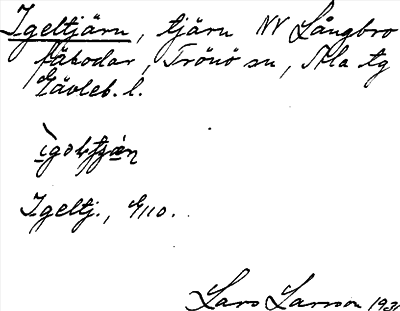 Igeltjärn, tjärn NV Långbro
fäbodar, Trönö sn, Ala tg
Gävleb. l.
Igeltj., G110.
Lars Larsson 193